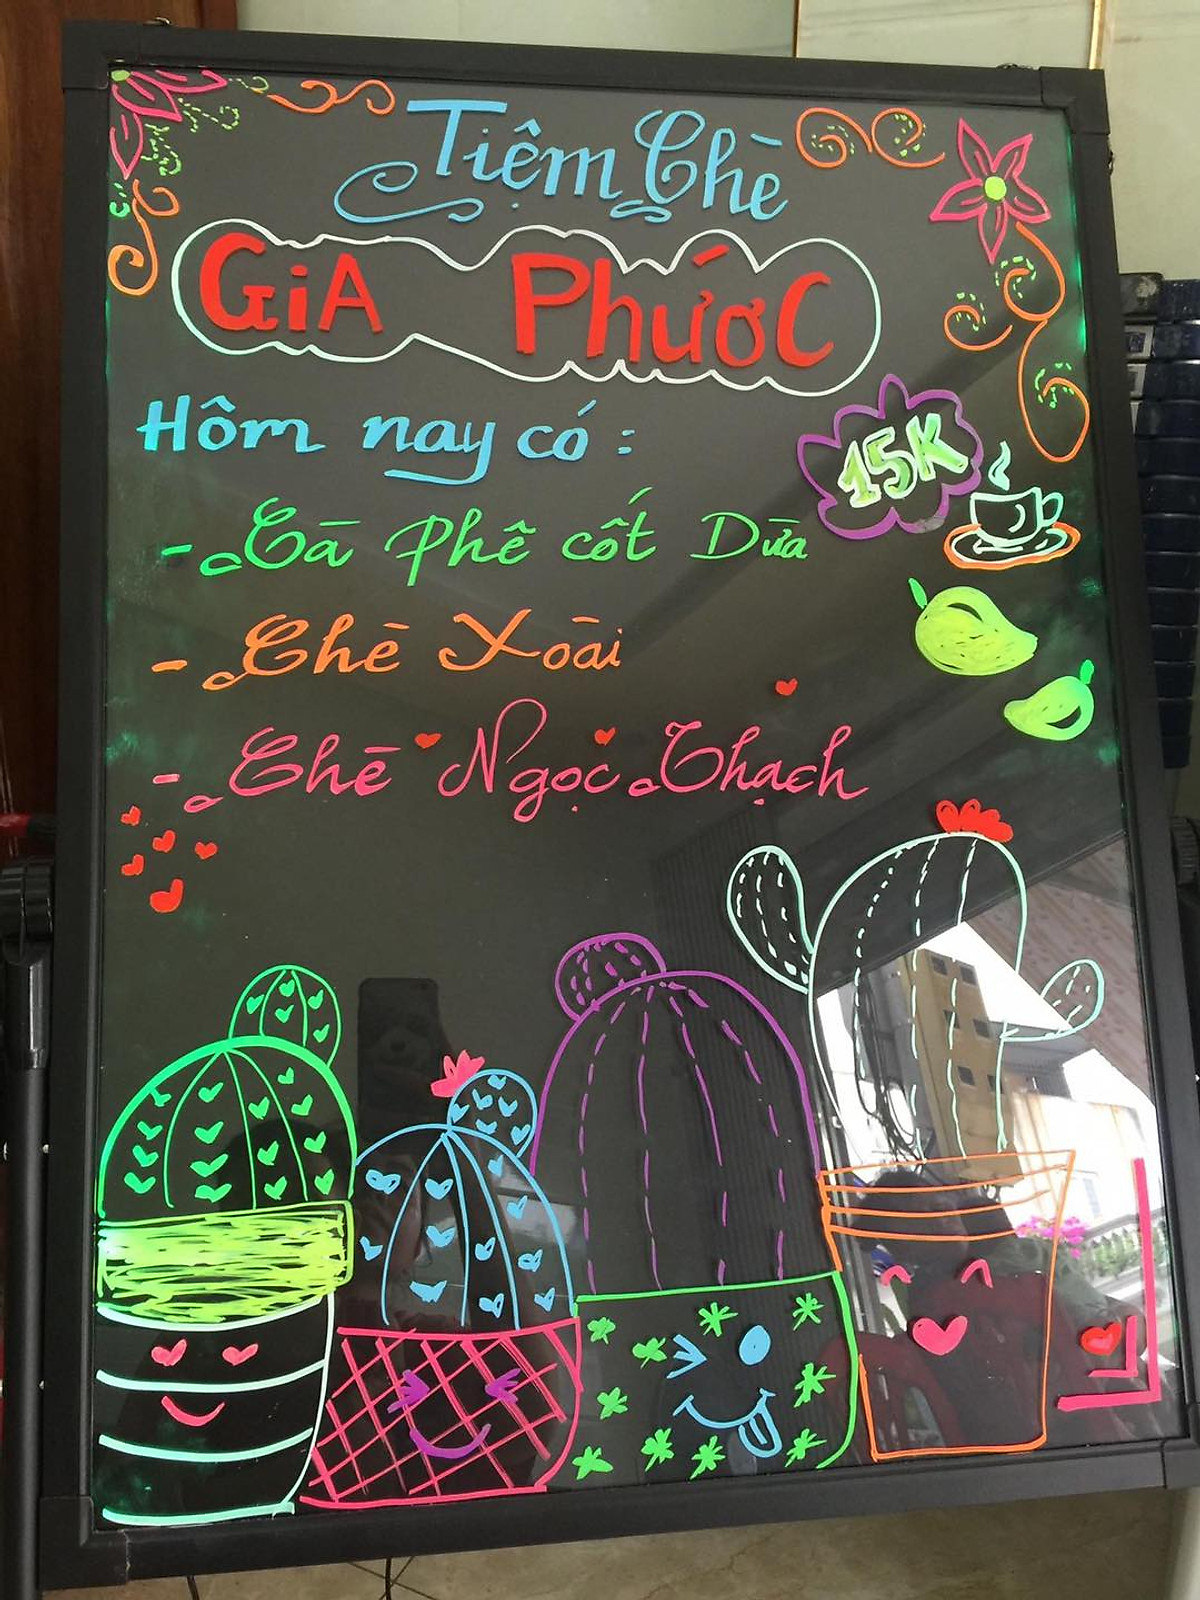 Tiệm Chè
GiA PhướC
Hôm nay có :
15K
- Cà phê cốt Dừa
- Chè Xoài
- Chè Ngọc Thạch